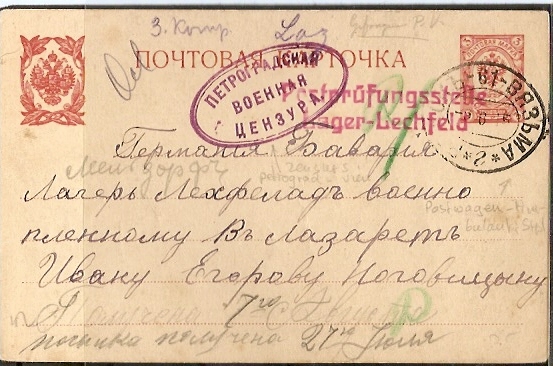 3. Komp. Laz
ПОЧТОВАЯ КАРТОЧКА
ПЕТРОГРАДСКАЯ
ВОЕННАЯ
ЦЕНЗУРА
Postprüfungsstelle
Lager-Lechfeld
ВЯЗЬМА
Германия Бавария
Лагерь Лехфеладъ военно
пленному Въ Лазаретъ
Ивану Егорову Ноговицыну
7го Августа
посылка получена 27го Июля